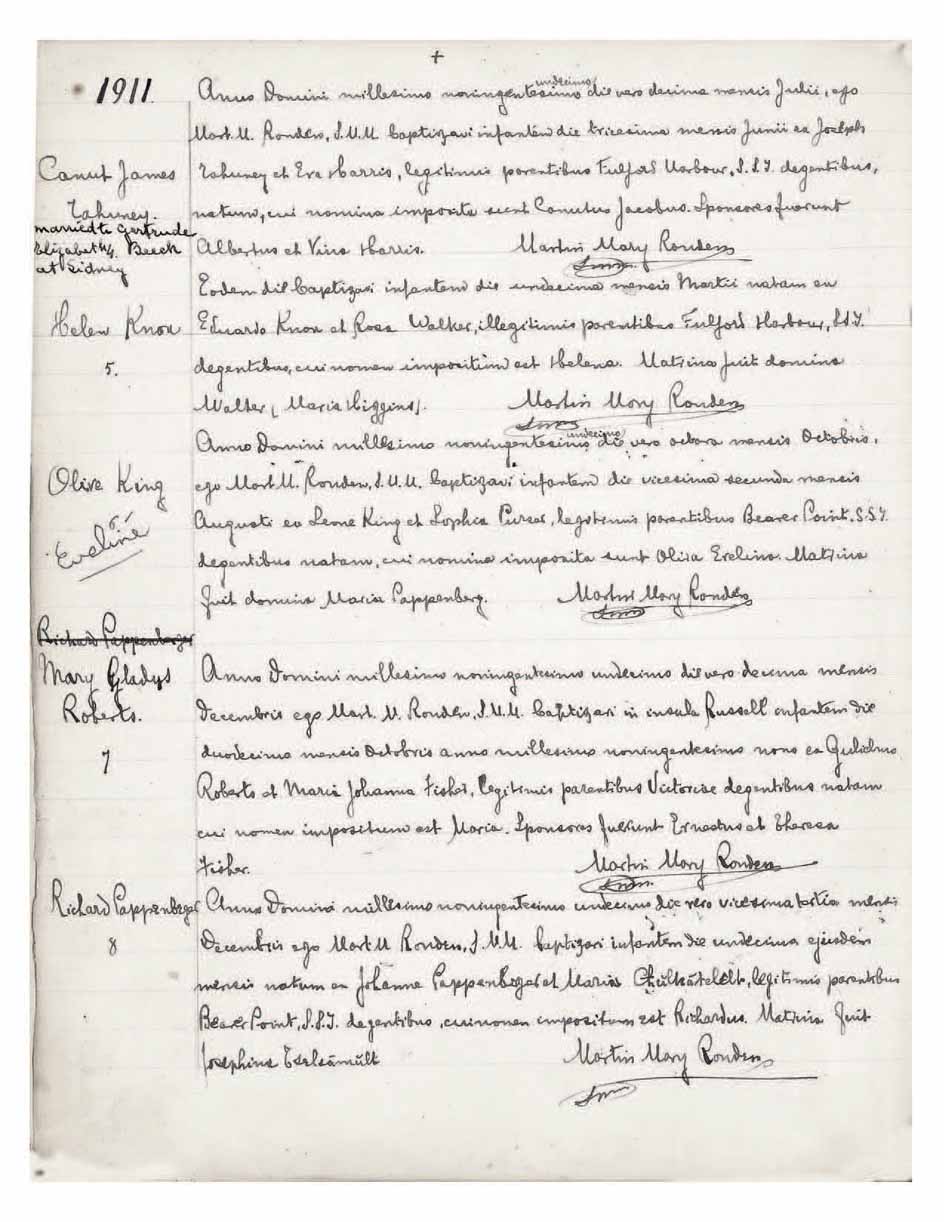 +
1911.
Anno Domini millesimo noningentesimo undecimo die vero decima mensis Julii, ego
Mart. M. Ronden, S.M.M. baptizavi infantem die tricesima mensis Junii ex Joseph
Canut James
Tahuney et Eva Harris, legitimis parentibus Fulford Harbour, S.S.I. degentibus,
Tahuney.
natum, cui nomina imposita sunt Canutus Jacobus. Sponsores fuerunt
married to Gertrude
Elizabeth Beech
at Sidney
Albertus et Harris. Martin Mary Ronden
Smm
Eodem die baptizavi infantem die undecima mensis Martii natam ex
Helen Knox
Eduardo Knox et Rosa Walker, illegitimis parentibus Fulford Harbour, S.S.I.
5.
degentibus, cui nomen impositum est Helena. Matrina fuit domina
Walter (Maria Higgins). Martin Mary Ronden
Smm
Anno Domini millesimo noningentesimo undecimo die vero octava mensis Octobris,
Olive King
ego Mart. M. Ronden, S.M.M. baptizavi infantem die vicesima secunda mensis
6.
Eveline
Augusti ex Leone King et Sophia Purser, legitimis parentibus Beaver Point, S.S.I.
degentibus natam, cui nomina imposita sunt Oliva Evelina. Matrina
fuit domina Maria Pappenberg. Martin Mary Ronden
Smm
Richard Pappenberger
Mary Gladys
Roberts.
7
Anno Domini millesimo noningentesimo undecimo die vero decima mensis
Decembris ego Mart. M. Ronden, S.M.M. baptizavi in insula Russell infantem die
duodecima mensis Octobris anno millesimo noningentesimo nono ex Gulielmo
Roberts et Maria Johanna Fisher, legitimis parentibus Victoriae degentibus natam
cui nomen impositum est Maria. Sponsores fuerunt Ernestus et Theresa
Fisher. Martin Mary Ronden
Smm
Richard Pappenberger
8
Anno Domini millesimo noningentesimo undecimo die vero vicesima tertia mensis
Decembris ego Mart. M. Ronden, S.M.M. baptizavi infantem die undecima ejusdem
mensis natum ex Johanne Pappenberger et Maria legitimis parentibus
Beaver Point, S.S.I. degentibus, cui nomen impositum est Richardus. Matrina fuit
Josephina Martin Mary Ronden
Smm